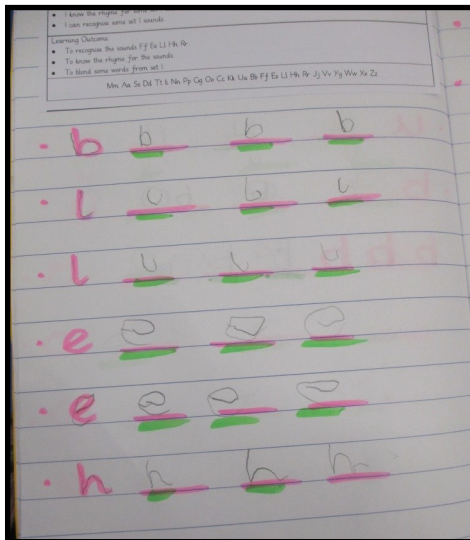 • I know the rhyme for some
• I can recognise some set 1 sounds
Learning Outcome:
• To recognise the sounds Ff Ee Ll Hh Rr
• To know the rhyme for the sounds
• To blend some words from set 1
Mm Aa Ss Dd Tt Ii Nn Pp Gg Oo Cc Kk Uu Bb Ff Ee Ll Hh Rr Jj Vv Yy Ww Xx Zz
• b b b b
• l
• l
• e e e e
• e e e e
• h h h h